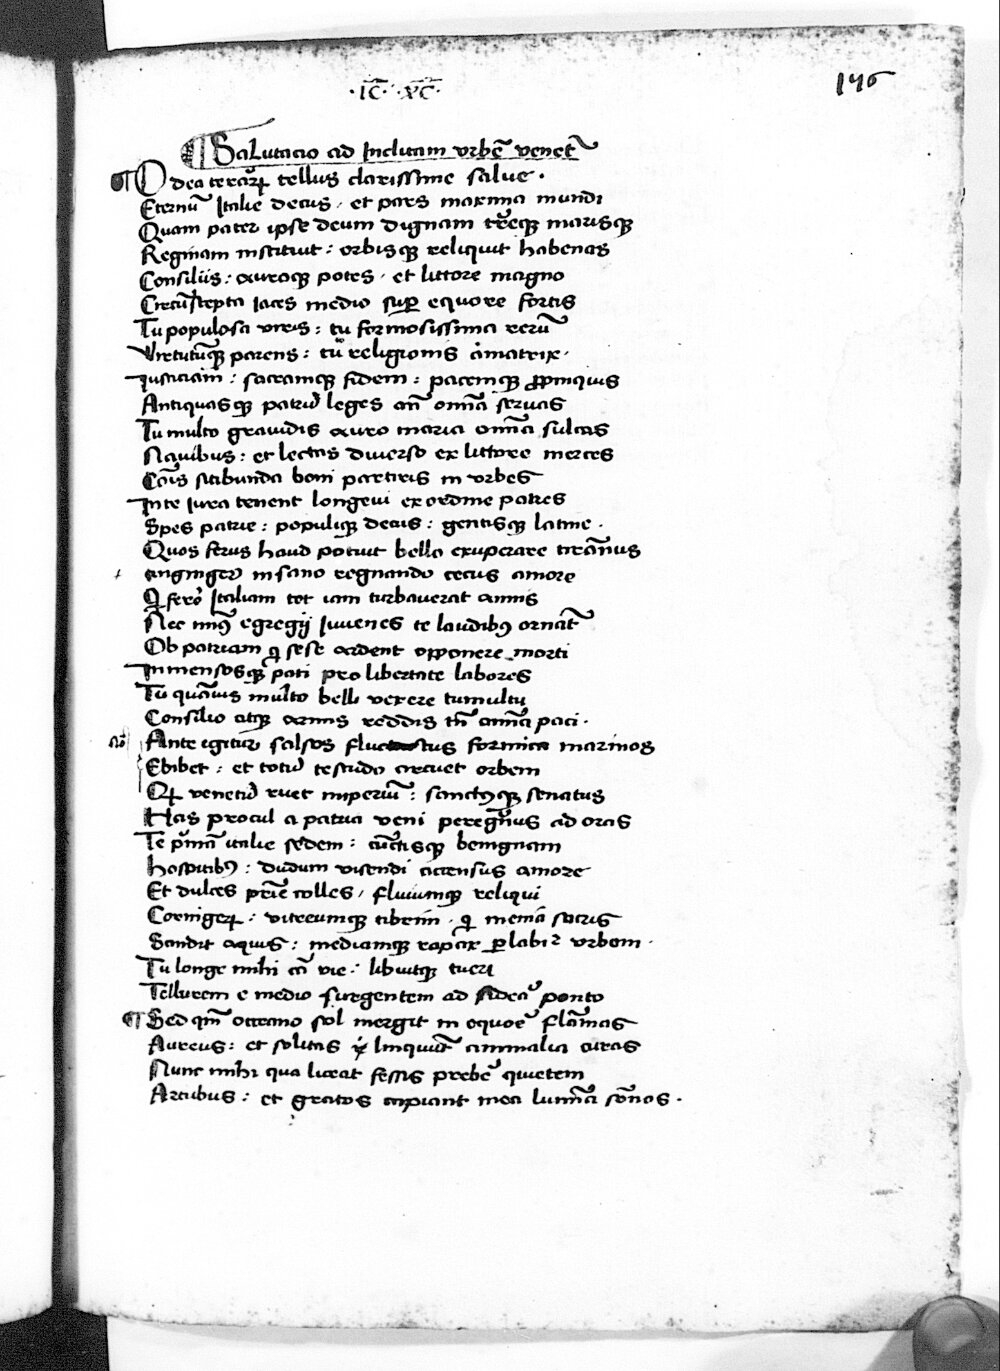 ·IC̅· ·XC̅·
176
¶ Salutacio ad Inclitam vrbē venet̄
O dea terarꝝ tellus clarissime salve ·
Eternū Italie decus · et pars maxima mundi
Quam pater ipse deum dignam tr̄eqꝫ marisqꝫ
Reginam instituit : orbisqꝫ reliquit habenas
Consiliis : auroqꝫ potes · et littore magno
Circūsepta iaces medio suꝑ equore fortis
Tu populosa viris : tu formosissima rerū
Virtutūqꝫ parens : tu religionis amatrix ·
Iusticiam : sacramqꝫ fidem : pacemqꝫ
Antiquasqꝫ patrū leges om̄ia servas
Tu multo gravidis auro maria om̄ia sulcas
Navibus : et lectas diverso ex littore merces
sitibunda boni partiris in vrbes
In te iura tenent longevi ex ordine patres
Spes patrie : populiqꝫ decus : gentisqꝫ latine ·
Quos ferus haud potuit bello exuperare tirānus
insano regnandi cecus amore
Italiam tot iam turbaverat annis
Nec minꝰ egregij iuvenes te laudibꝰ ornāt
Ob patriam qi sese ardent opponere morti
Inmensosqꝫ pati pro libertate labores
Tu quāvis multo belli vexere tumultu
Consilio atqꝫ armis reddis tn̄ om̄ia paci ·
Ante igitur salsos fluctus formica marinos
Ebibet : et totū testudo circuet orbem
Qꝫ venetū ruet imperiū : sanctꝰqꝫ senatus
Has procul a patria veni peregrinus ad oras
Te p̄mā italie sedem : cūctisqꝫ benignam
hospitibꝰ : dudum visendi accensus amore
Et dulces colles · fluviumqꝫ reliqui
Cornigerꝝ : vitreumqꝫ tibrim · qi menia sacris
Scindit aquis : mediamqꝫ rapax ꝑlabit᷑ vrbem ·
Tu longe mihi cā vie : libuitqꝫ tueri
Tellurem e medio surgentem ad sidera ponto
¶ Sed qm̄ occeano sol mergit in equore flāmas
Aureus : et solitas linquūt animalia curas
Nunc mihi qua liceat fessis prebere quietem
Artubus : et gratos capiant mea lumīa sōnos ·